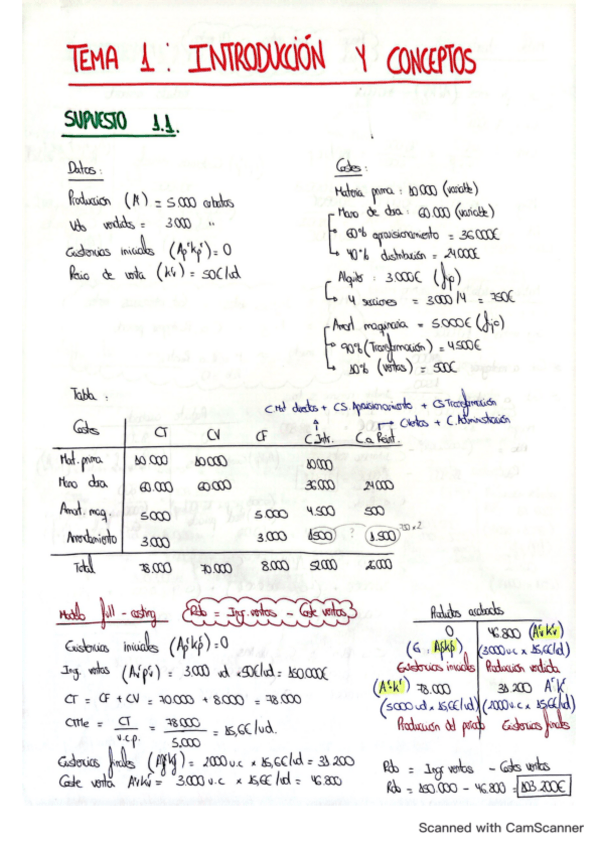 TEMA 1 : INTRODUCCIÓN Y CONCEPTOS
SUPUESTO 1.1.
Datos :
Producción (A) = 5000 acabados
Uds vendidas = 3000 "
Existencias iniciales = 0
Precio de venta = 50€/ud
Costes :
Materia prima : 10.000 (variable)
Mano de obra : 60.000 (variable)
60% aprovisionamiento = 36000€
40% distribución = 24.000€
Alquiler : 3.000€ (fijo)
4 secciones = 3.000/4 = 750€
Amort maquinaria = 5.000€ (fijo)
90% (Transformación) = 4.500€
10% (ventas) = 500€
Tabla :
C Mat directos + CS. Aprovisionamiento + CS. Transformación
C Ventas + C. Administración
Costes CT CV CF C. Intr. C. a Result.
Mat. prima 10.000 10.000 10.000
Mano obra 60.000 60.000 36.000 24.000
Amort. maq. 5.000 5.000 4.500 500
Arrendamiento 3.000 3.000 1500 ? 1.500 750×2
Total 78.000 70.000 8.000 52000 26.000
Modelo full-costing Rdo = Ing. ventas - Coste ventas
Existencias iniciales = 0
Ing. ventas = 3.000 ud × 50€/ud = 150.000€
CT = CF + CV = 70.000 + 8.000 = 78.000
CTMe = CT / u.c.p. = 78.000 / 5.000 = 15,6€/ud.
Existencias finales = 2000 u.c × 15,6€/ud = 31.200
Coste venta = 3.000 u.c × 15,6€/ud = 46.800
Productos acabados
0 46.800
(3000 u.c × 15,6€/ud)
Existencias iniciales Producción vendida
78.000 31.200
(5000 ud × 15,6€/ud) (2000 u.c × 15,6€/ud)
Producción del periodo Existencias finales
Rdo = Ingr ventas - Costes ventas
Rdo = 150.000 - 46.800 = 103.200€
Scanned with CamScanner